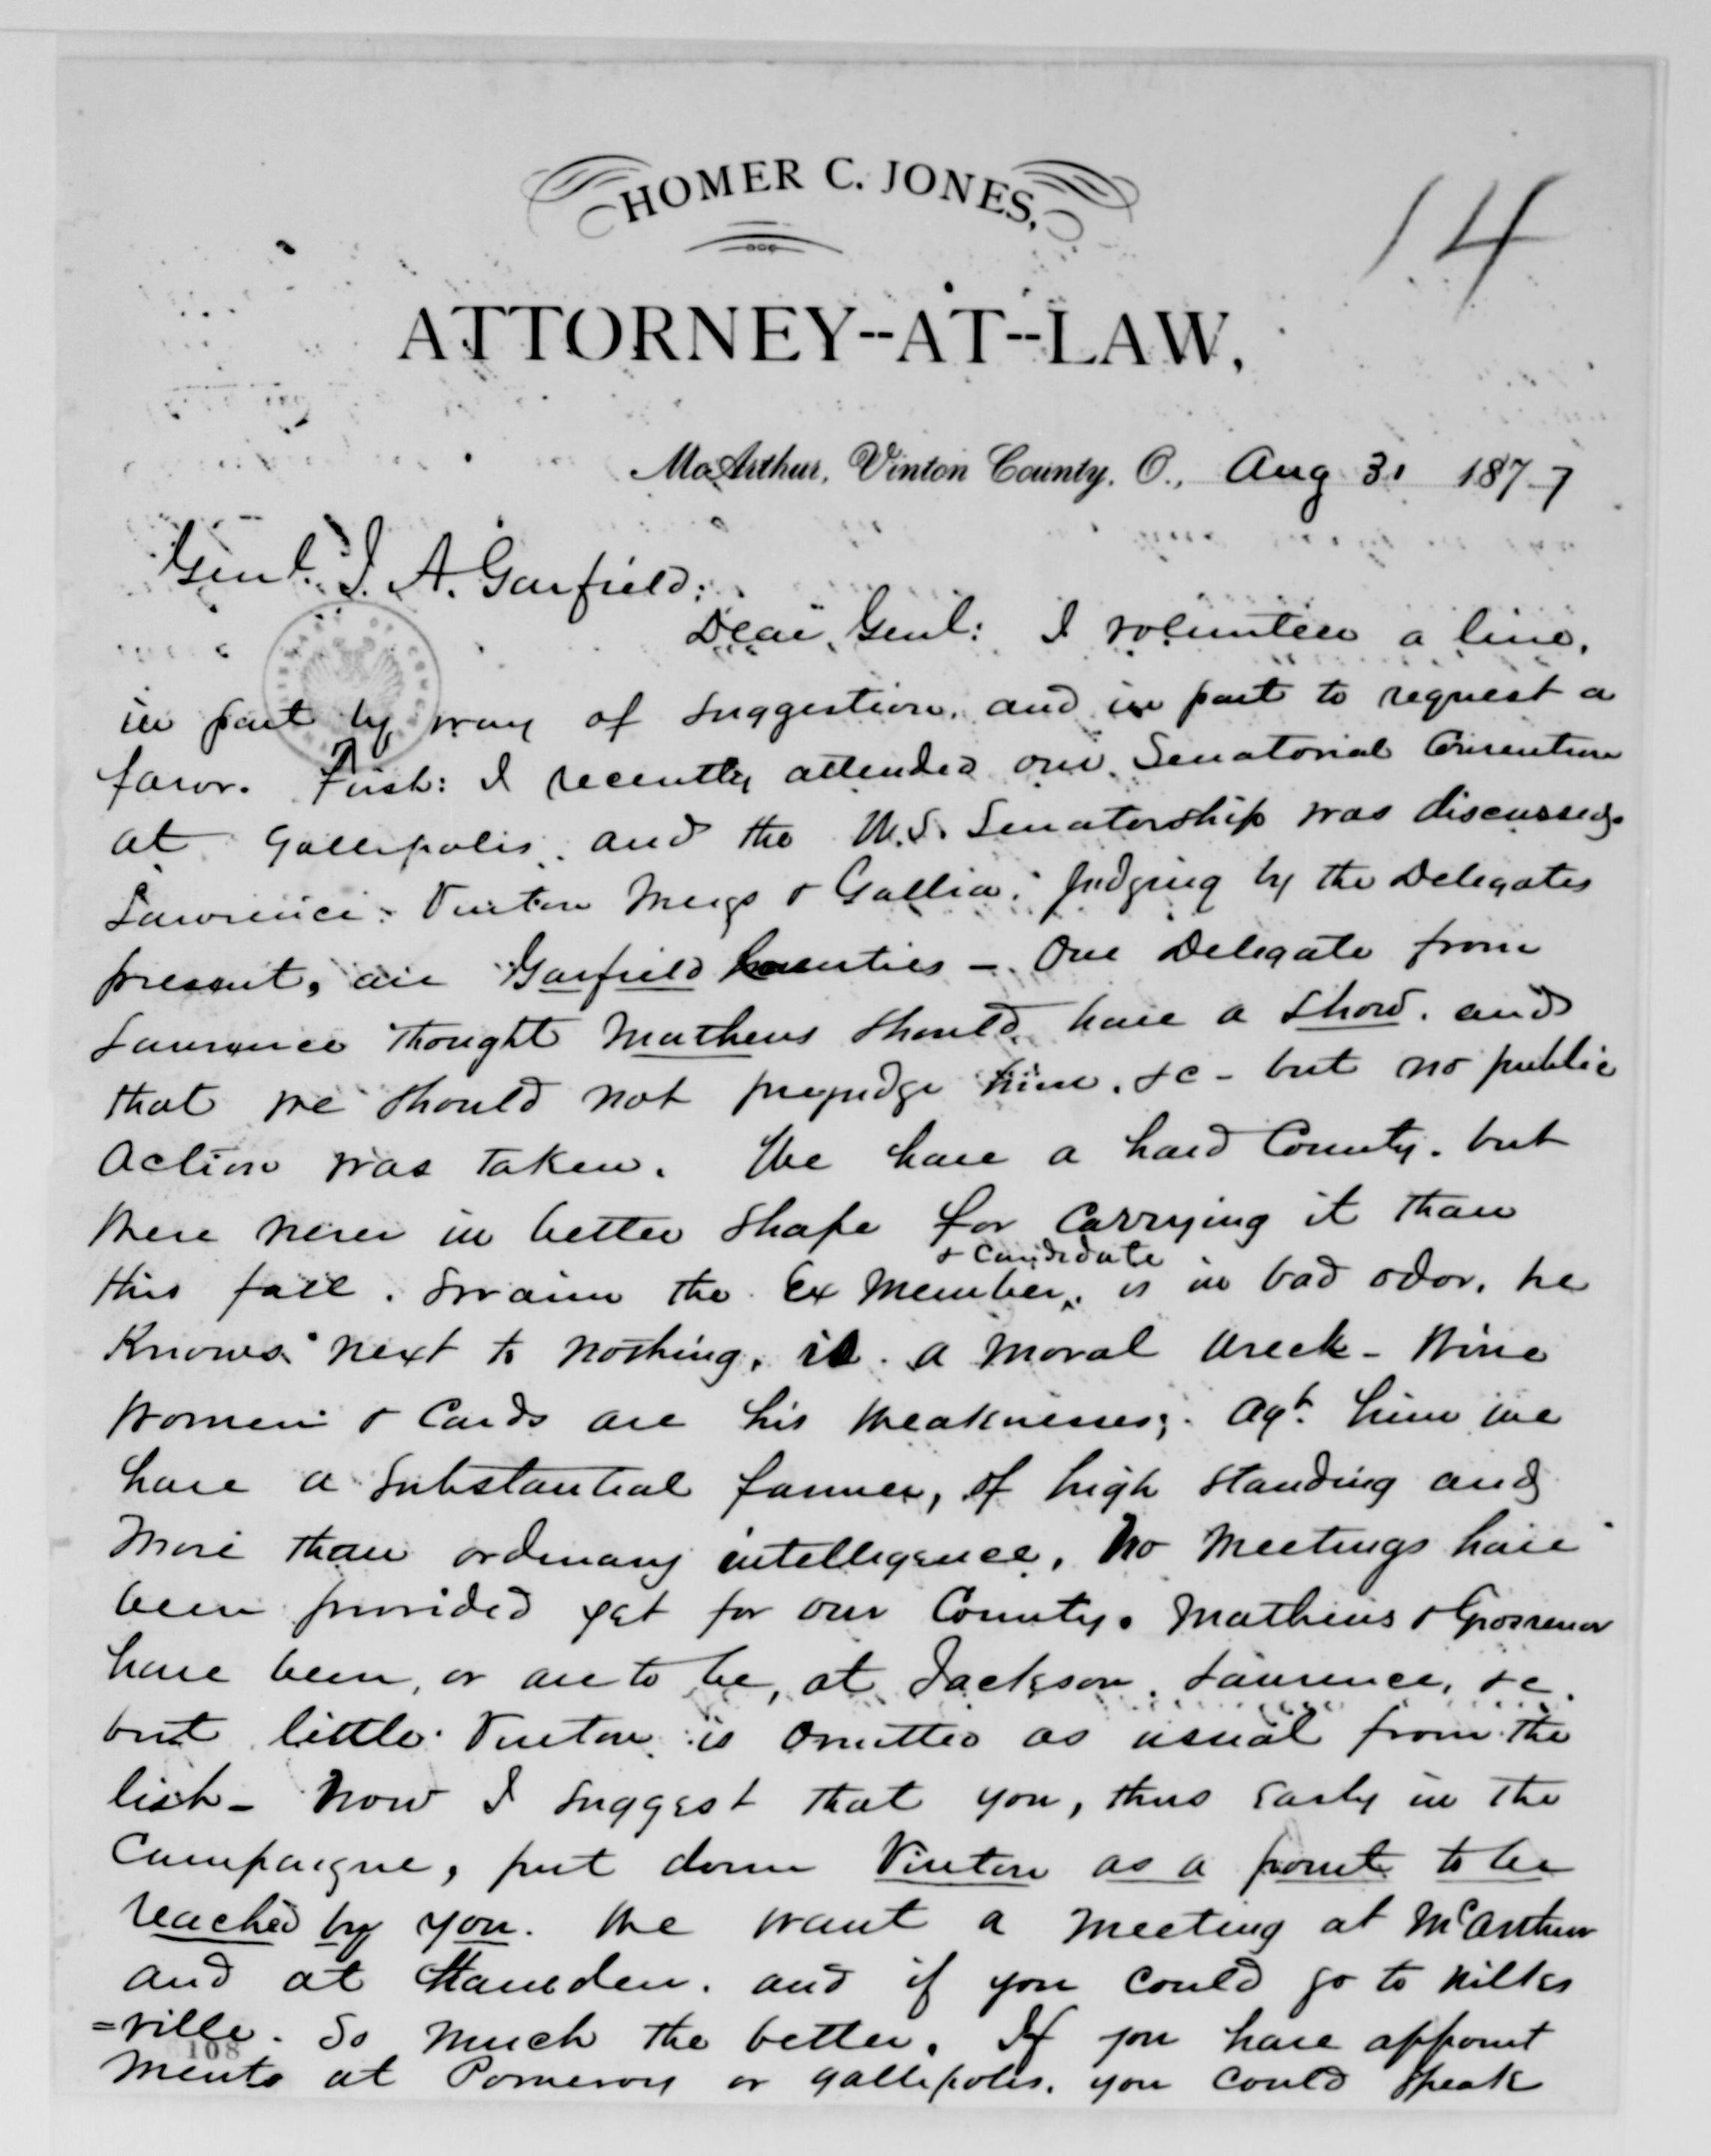 HOMER C. JONES,
14
ATTORNEY--AT--LAW,
McArthur, Vinton County, O., Aug 31 1877
Genl. J. A. Garfield:
Dear Genl: I volunteer a line,
in part by way of suggestion, and in part to request a
favor. First: I recently attended our Senatorial Convention
at Gallipolis, and the U.S. Senatorship was discussed.
Lawrence, Vinton Meigs & Gallia, judging by the Delegates
present, are Garfield Counties - One Delegate from
Lawrence thought Mathews should have a show, and
that we should not prejudge him, &c - but no public
action was taken. We have a hard County, but
were never in better shape for carrying it than
& candidate
this fall. Swaim the Ex Member, is in bad odor, he
knows next to nothing, is a moral wreck - Wine
women & cards are his weaknesses; Agt. him we
have a substantial farmer, of high standing and
more than ordinary intelligence. No meetings have
been provided yet for our County. Mathews & Grosvenor
have been, or are to be, at Jackson, Lawrence, &c.
but little Vinton is omitted as usual from the
list - Now I suggest that you, thus early in the
Campaigne, put down Vinton as a point to be
reached by you. We want a meeting at McArthur
and at Hamden, and if you could go to Wilks
=ville. So much the better. If you have appoint
108
ments at Pomeroy or Gallipolis, you could speak